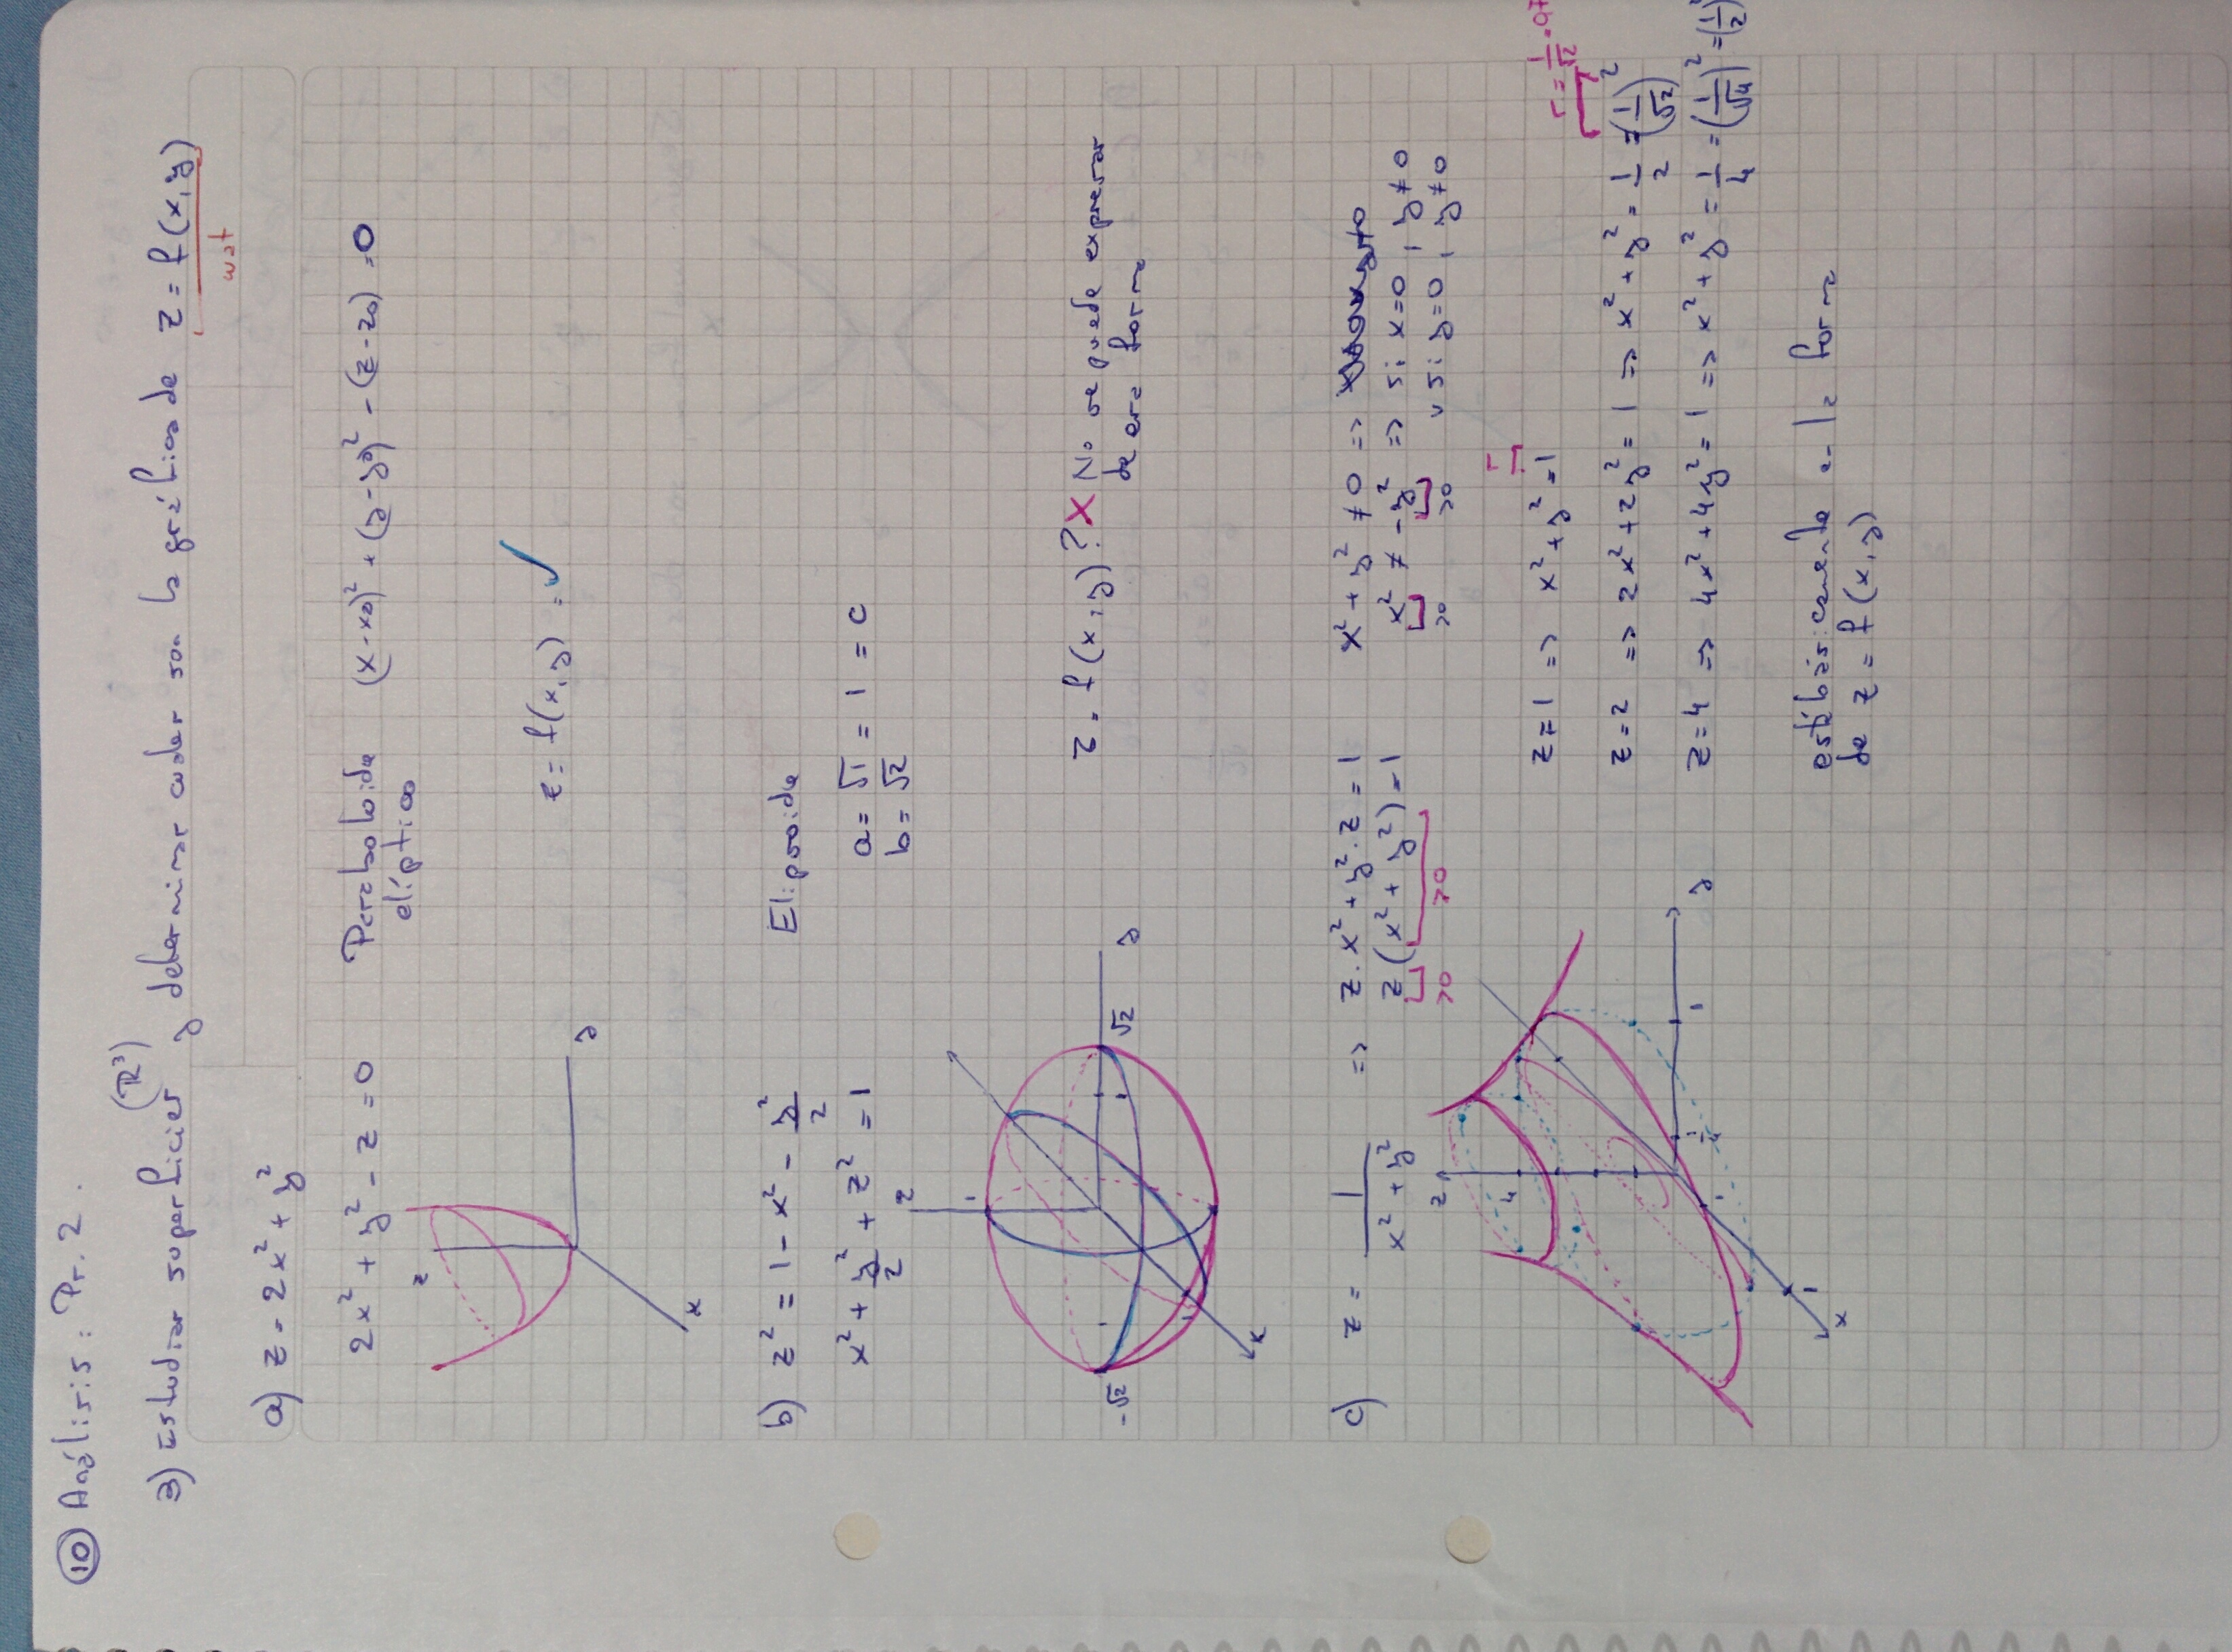 ⑩ Análisis: Pr. 2.
(ℝ³)
3) Estudiar superficies y determinar cuales son la gráfica de z = f(x, y)
wat
a) z = 2x² + y²
2x² + y² - z = 0 Paraboloide (x - x0)² + (y - y0)² - (z - z0) = 0
elíptico
z
z = f(x, y) = ✓
y
x
b) z² = 1 - x² - y²/2 Elipsoide
x² + y²/2 + z² = 1 a = √1 = 1 = c
b = √2
z
1
z = f(x, y)? X No se puede expresar
de esa forma
-√2 1 √2 y
1
x
c) z = 1/(x² + y²) => z·x² + y²·z = 1 x² + y² ≠ 0 =>
z(x² + y²) = 1 x² ≠ -y² => si x = 0, y ≠ 0
>0 >0 >0 >0 v si y = 0, y ≠ 0
z
4
r
z = 1 => x² + y² = 1
r = 1/√2 = 0,7
z = 2 => 2x² + 2y² = 1 => x² + y² = 1/2 = (1/√2)²
z = 4 => 4x² + 4y² = 1 => x² + y² = 1/4 = (1/√4)² = (1/2)²
1 y
1
x
está básicamente en la forma
de z = f(x, y)